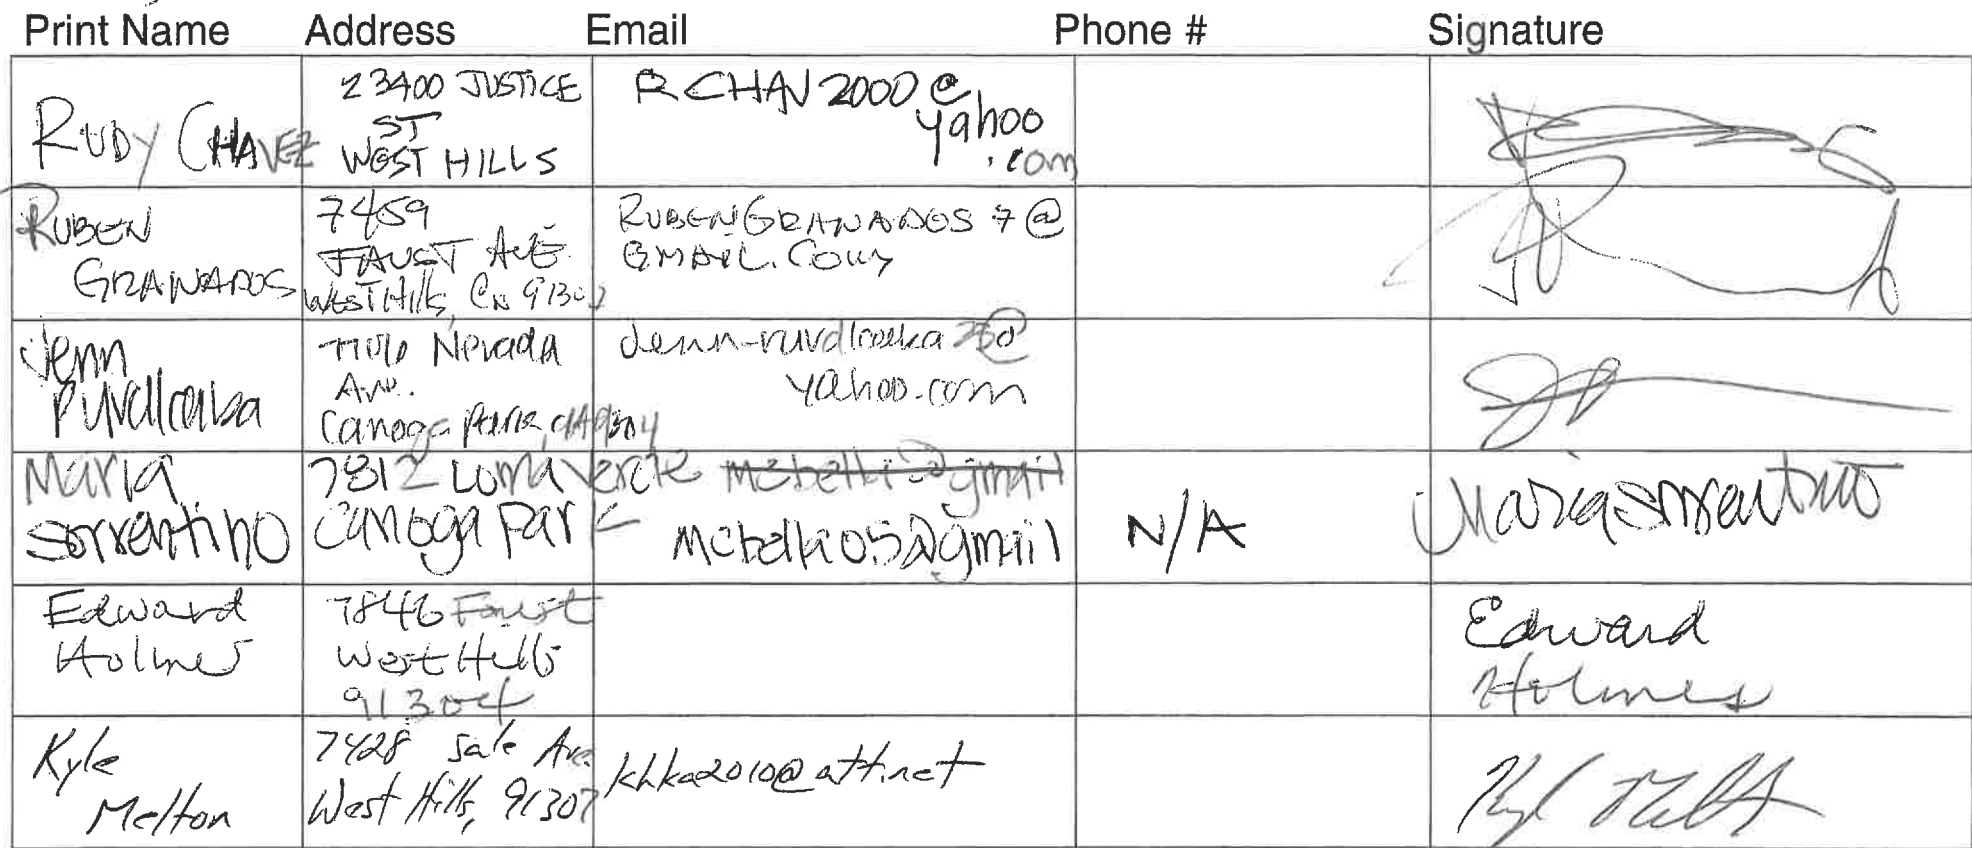 Print Name Address Email Phone # Signature
RUDY CHAVEZ
23400 JUSTICE
ST
WEST HILLS
RCHAV2000@
yahoo
.com
RUBEN
GRANADOS
7459
FAUST AVE.
West Hills, CA 91307
RUBENGRANADOS7@
GMAIL.COM
Jenn
Nevada
Av.
Canoga Park, CA
yahoo.com
Maria
Sorrentino
7812 Loma Verde
Canoga Park
mcbelli05@gmail
N/A
Maria Sorrentino
Edward
Holmes
7846 Faust
West Hills
91304
Edward
Holmes
Kyle
Melton
7428 Sale Ave.
West Hills, 91307
khka2010@att.net